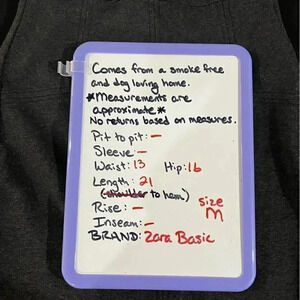 Comes from a smoke free
and dog loving home.
*Measurements are
approximate*
No returns based on measures.
Pit to pit: -
Sleeve: -
Waist: 13 Hip: 16
Length: 21
(shoulder to hem)
Rise: - size
Inseam: - M
BRAND: Zara Basic